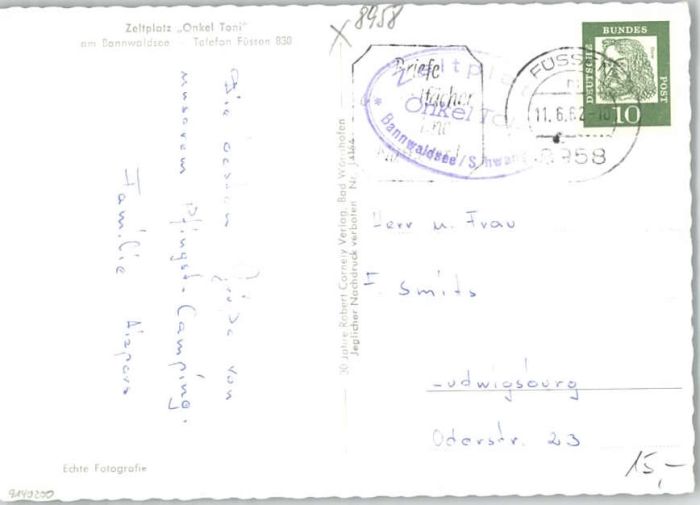 Zeltplatz „Onkel Toni"
am Bannwaldsee - Telefon Füssen 830
Die besten Grüße von
unserem Pfingst-Camping.
Familie
Echte Fotografie
9149200
30 Jahre Robert Cornely Verlag, Bad Wörishofen
Jeglicher Nachdruck verboten Nr. J4164
x 8958
Briefe
Zeltplatz
Onkel Toni
* Bannwaldsee/Schwan
FÜSSEN
11.6.62-18
8958
DEUTSCHE
BUNDES
POST
10
Herr u. Frau
F. Smits
Ludwigsburg
Oderstr. 23
15,-